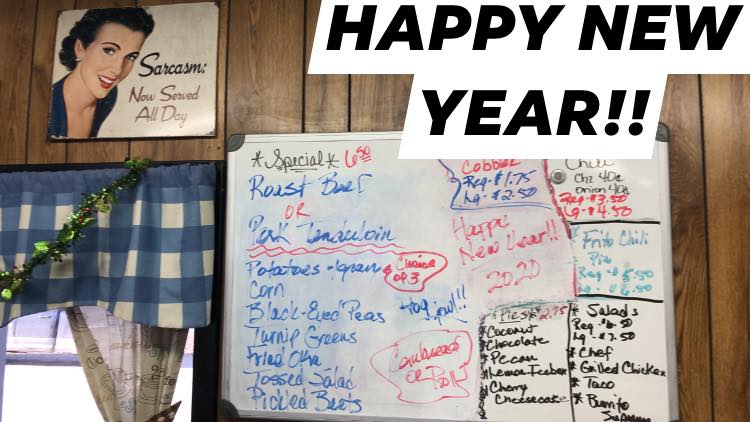 HAPPY NEW
YEAR!!
Sarcasm:
Now Served
All Day
*Special* 6.50
Roast Beef
OR
Pork Tenderloin
Potatoes & gravy
Corn
Black-Eyed Peas
Turnip Greens
Fried Okra
Tossed Salad
Pickled Beets
Choice
of 3
Hog jowl!!
Cornbread
or Roll
Cobbler
Reg-$1.75
Lg-$2.50
Happy
New Year!!
2020
*Pies* $2.75
*Coconut
*Chocolate
*Pecan
*Lemon Icebox
*Cherry
Cheesecake
Chili
Chz 40¢
Onion 40¢
Reg-$3.50
Lg-$4.50
Frito Chili
Pie
Reg-$5.50
Lg-$6.50
*Salads
Reg-6.50
Lg-$7.50
*Chef
*Grilled Chicken
*Taco
*Burrito
Supreme